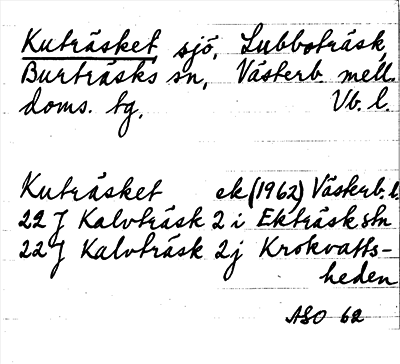 Kuträsket sjö, Lubboträsk,
Burträsks sn, Västerb. mell.
doms. tg, Vb. l.
Kuträsket ek (1962) Västerb. l.
22 J Kalvträsk 2 i Ekträsk stn
22 J Kalvträsk 2 j Krokvatts-
heden
ASO 62